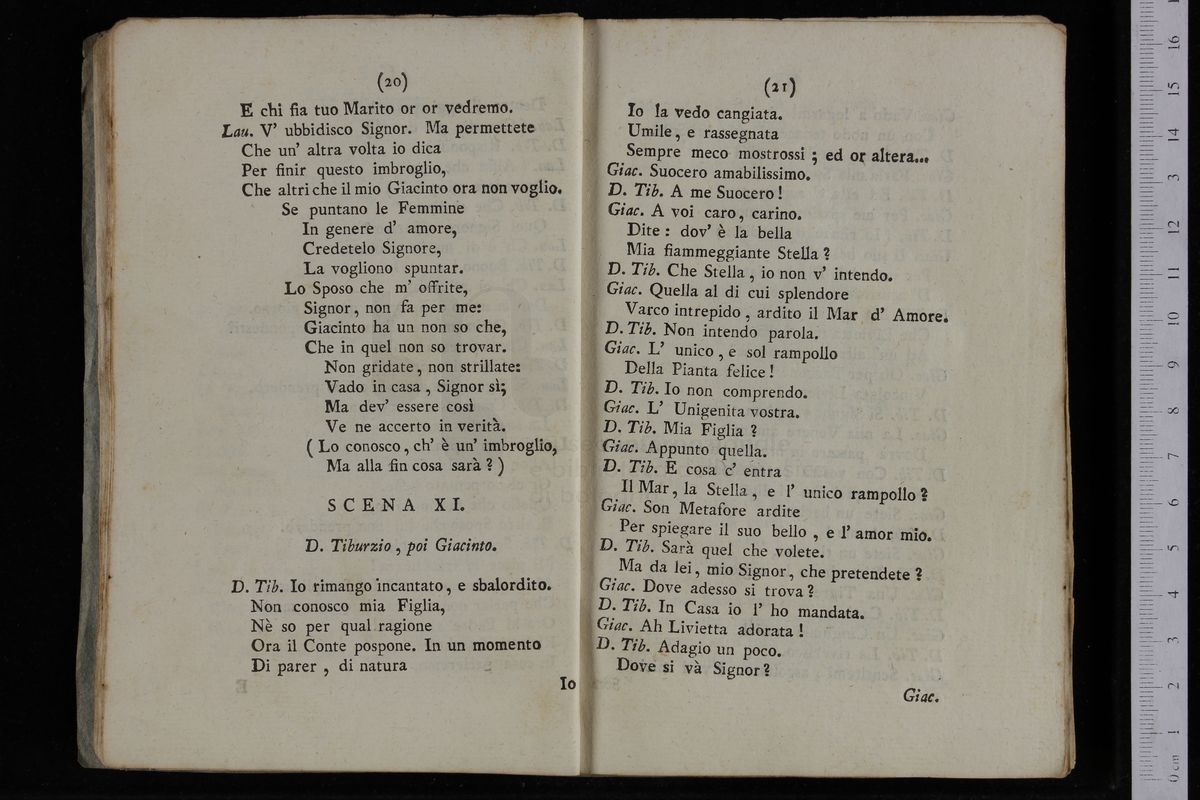 (20)
E chi fia tuo Marito or or vedremo.
Lau. V' ubbidisco Signor. Ma permettete
Che un' altra volta io dica
Per finir questo imbroglio,
Che altri che il mio Giacinto ora non voglio.
Se puntano le Femmine
In genere d' amore,
Credetelo Signore,
La vogliono spuntar.
Lo Sposo che m' offrite,
Signor, non fa per me:
Giacinto ha un non so che,
Che in quel non so trovar.
Non gridate, non strillate:
Vado in casa, Signor sì;
Ma dev' essere così
Ve ne accerto in verità.
( Lo conosco, ch' è un' imbroglio,
Ma alla fin cosa sarà? )
SCENA XI.
D. Tiburzio, poi Giacinto.
D. Tib. Io rimango incantato, e sbalordito.
Non conosco mia Figlia,
Nè so per qual ragione
Ora il Conte pospone. In un momento
Di parer, di natura
Io
(21)
Io la vedo cangiata.
Umile, e rassegnata
Sempre meco mostrossi; ed or altera...
Giac. Suocero amabilissimo.
D. Tib. A me Suocero!
Giac. A voi caro, carino.
Dite: dov' è la bella
Mia fiammeggiante Stella?
D. Tib. Che Stella, io non v' intendo.
Giac. Quella al di cui splendore
Varco intrepido, ardito il Mar d' Amore.
D. Tib. Non intendo parola.
Giac. L' unico, e sol rampollo
Della Pianta felice!
D. Tib. Io non comprendo.
Giac. L' Unigenita vostra.
D. Tib. Mia Figlia?
Giac. Appunto quella.
D. Tib. E cosa c' entra
Il Mar, la Stella, e l' unico rampollo?
Giac. Son Metafore ardite
Per spiegare il suo bello, e l' amor mio.
D. Tib. Sarà quel che volete.
Ma da lei, mio Signor, che pretendete?
Giac. Dove adesso si trova?
D. Tib. In Casa io l' ho mandata.
Giac. Ah Livietta adorata!
D. Tib. Adagio un poco.
Dove si và Signor?
Giac.
16
15
14
13
12
11
10
9
8
7
6
5
4
3
2
1
0 cm